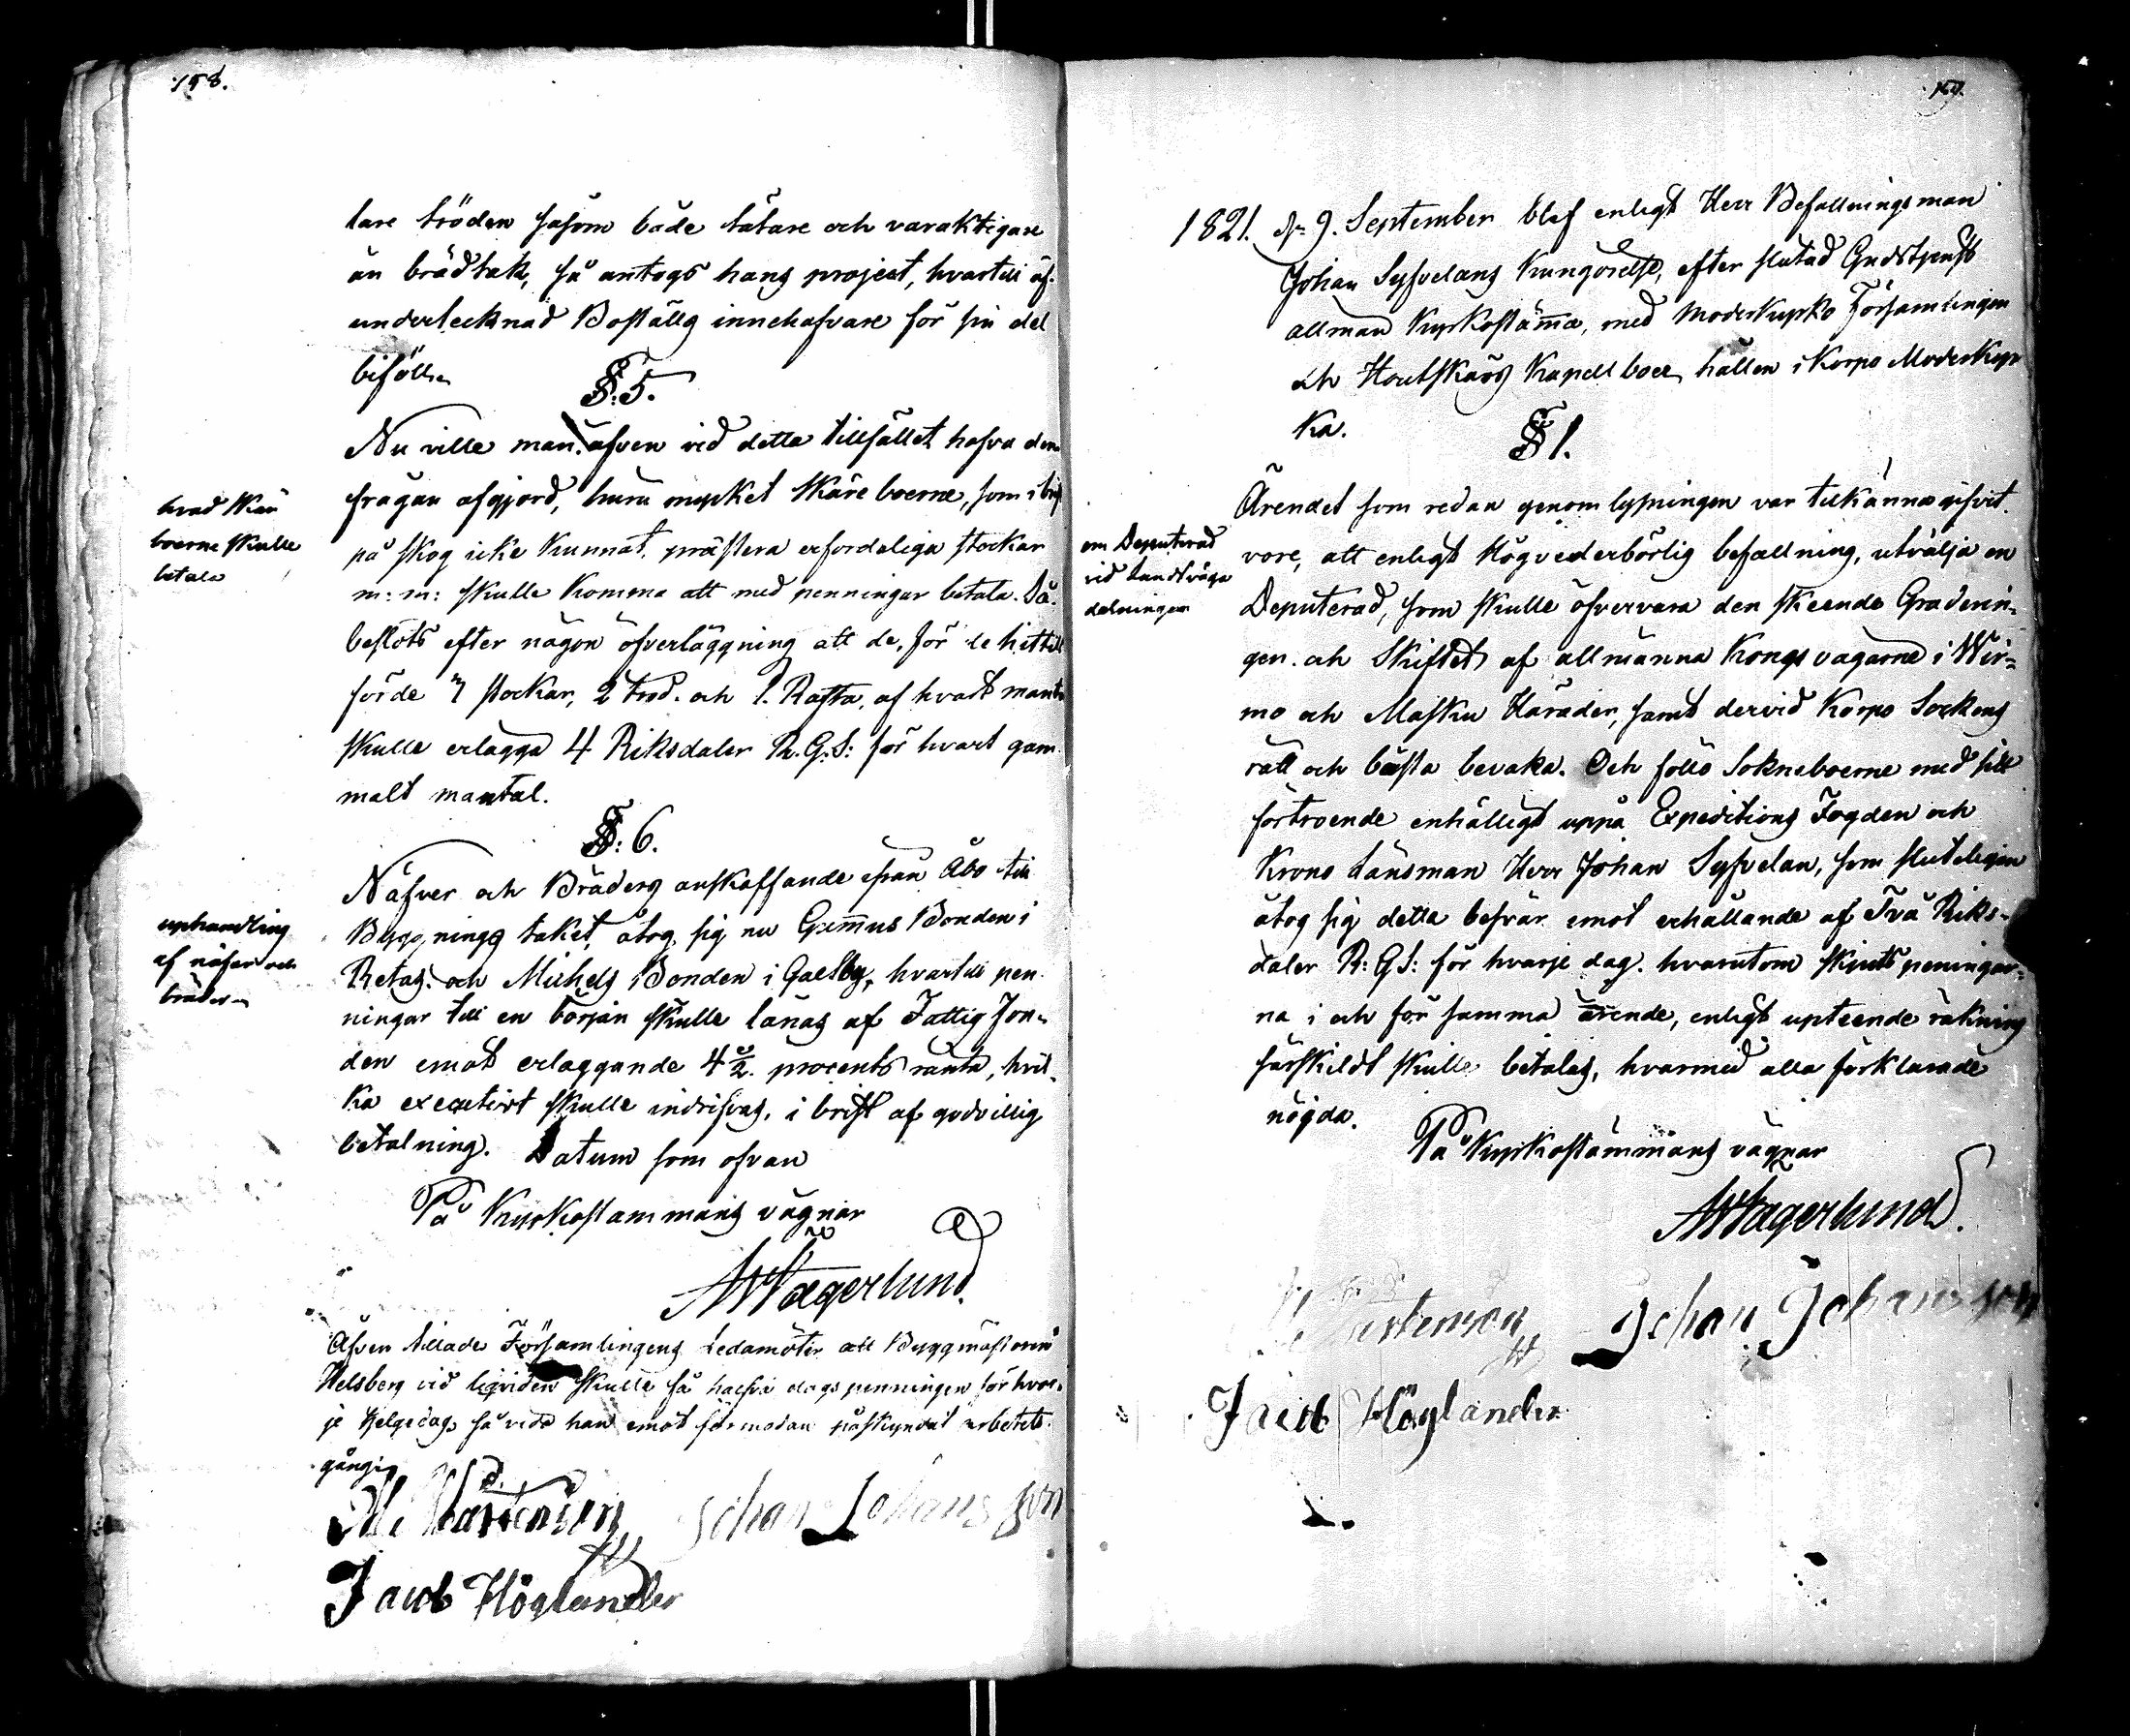 158.
tare tröden såsom både tätare och varaktigare
än brädtak, så antogs hans project, hvartill äf.
undertecknad Boställs innehafvare för sin del
biföll.
§. 5.
Nu ville man äfven vid detta tillfället hafva den
frågan afgjord, huru mycket Skäreboerne, som i brist
på skog icke kunnat præstera erforderliga stockar
m: m: skulle komma att med penningar betala. Då
beslöts efter någon öfverläggning att de, för de hittill
förde 7 stockar, 2 trod. och 1. Rafta, af hvart mantal
skulle erlägga 4 Riksdaler R. G. S: för hvart gam
malt mantal.
hvad Skär
boerne skulle
betala
§. 6.
Näfver och Bräders anskaffande ifrån Åbo till
Byggnings taket, åtog sig nu Gummus Bonden i
Retas. och Michels Bonden i Galtby, hvartill pen
ningar till en början skulle lånas af Fattig Fon-
den emot erläggande 4 1/2. procents ränta, hvil-
ka executivt skulle indrifvas, i brist af godvillig
betalning. Datum som ofvan
uphandling
af näfver och
bräder
På Kyrkostämmans vägnar
AWagerlund.
Äfven tillade Församlingens Ledamöter att Byggmästaren
Helsberg vid liqviden skulle få halfva dagspenningen för hvar-
je Helgedag, så vida han emot förmodan påskyndat arbetets
gång.
M. Mårtenson Johan Johansson
Jacob Höglander
159.
1821. d. 9. September blef enligt Herr Befallningsman
Johan Sylvelans kungörelse, efter slutad Gudstjenst
allmän Kyrkostämma, med Moderkyrko Församlingen
och Houtskärs Kapellboer, hållen i Korpo Moderkyr
ka.
§ 1.
Ärendet som redan genom lysningen var tilkänna gifvit
vore, att enligt Högvederbörlig befallning, utvälja en
Deputerad, som skulle öfvervara den skeende Graderin-
gen och Skiftet af allmänna Kongs vägarne i Wir-
mo och Masku Härader, samt dervid Korpo Sockens
rätt och bästa bevaka. Och föllo Sokneboerne med sitt
förtroende enhälligt uppå Expeditions Fogden och
Krono Länsman Herr Johan Sylvelan, som sluteligen
åtog sig detta besvär emot erhållande af Två Riks-
daler R: G S: för hvarje dag. hvarutom Skjuts peningar-
na i och för samma ärende, enligt upteende räkning
särskildt skulle betalas, hvarmed alla förklarade
nöjda.
om Deputerad
vid Landsvägs
delningen
På Kyrkostämmans vägnar
AWagerlund.
Mårtenson Johan Johansson
Jacob Höglander